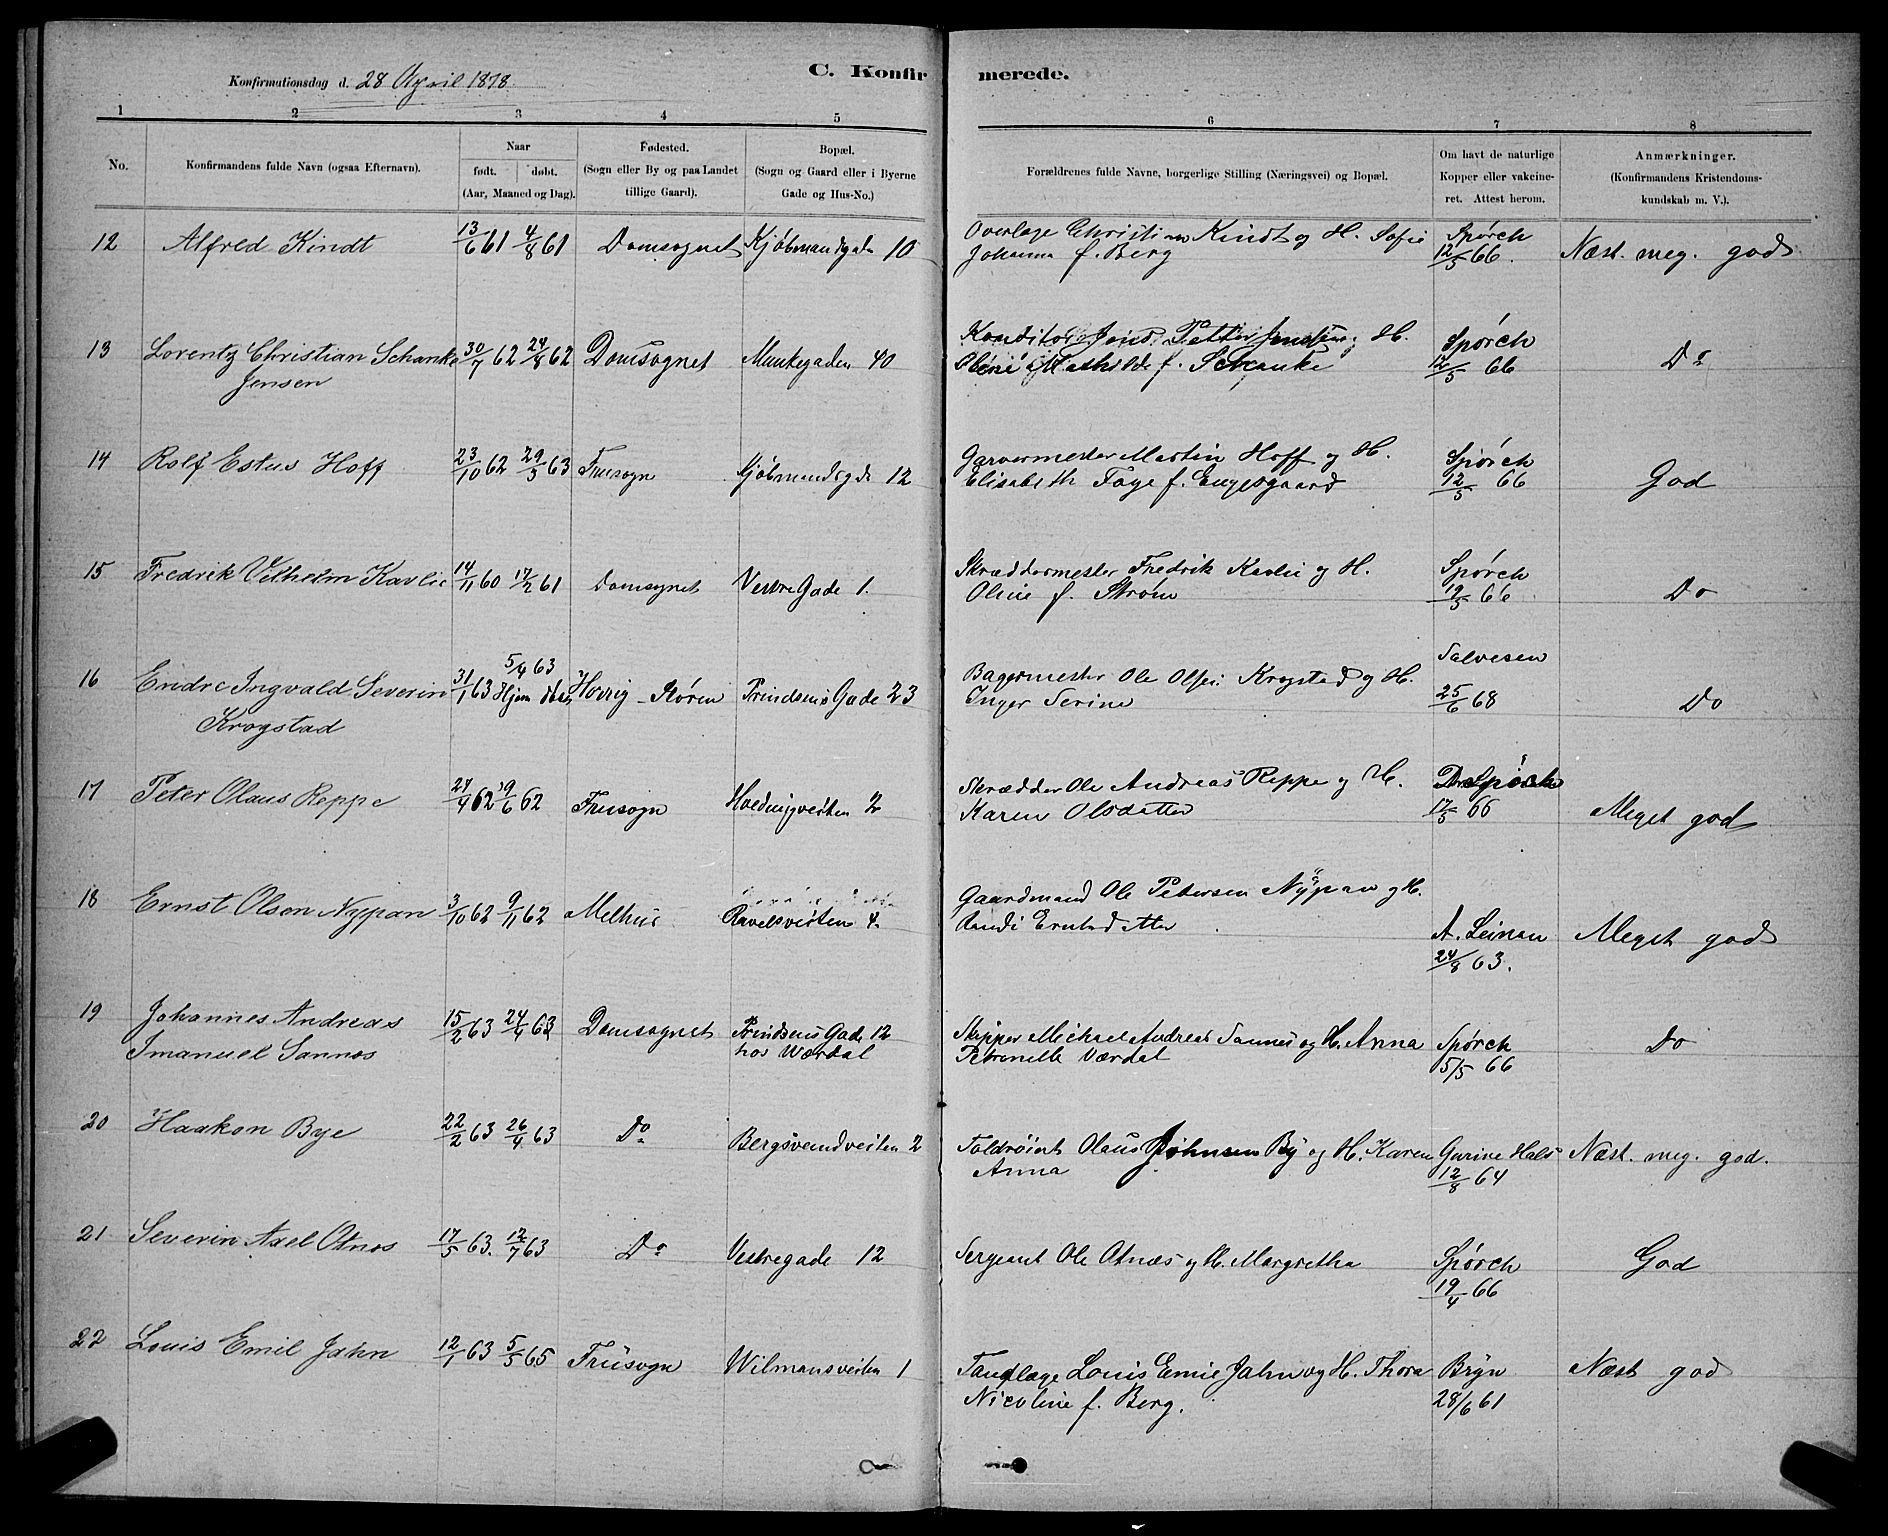 C. Konfirmerede.
Konfirmationsdag d. 28 April 1878.
1 2 3 4 5 6 7 8
No. Konfirmandens fulde Navn (ogsaa Efternavn). Naar født. døbt. (Aar, Maaned og Dag). Fødested. (Sogn eller By og paa Landet tillige Gaard). Bopæl. (Sogn og Gaard eller i Byerne Gade og Hus-No.) Forældrenes fulde Navne, borgerlige Stilling (Næringsvei) og Bopæl. Om havt de naturlige Kopper eller vakcineret. Attest herom. Anmærkninger. (Konfirmandens Kristendomskundskab m. V.).
12 Alfred Kindt 13/6 61 4/8 61 Domsognet Kjøbmandsgade 10 Overlæge Christian Kindt og H. Sofie Spørck Næst. meg. god
Johanna f. Berg 12/5 66.
13 Lorentz Christian Schanke 30/7 62 24/8 62 Domsognet Munkegaden 40 Konditor Petter Jensen og H. Spørck Do
Jensen Mathilde f. Schanke 12/5 66
14 Rolf Estus Hoff 23/10 62 29/3 63 Fruesogn Kjøbmandsgde 12 Garvermester Martin Hoff og H. Spørck God
Elisabeth Faye f. Engesgaard 12/5 66
15 Fredrik Vilhelm Kavlie 14/11 60 17/2 61 Domsognet Vestre Gade 1. Skræddermester Fredrik Kavlie og H. Spørck Do
Oline f. Strøm 19/5 66
16 Endre Ingvald Severin 31/1 63 5/4 63 Hjem døbt Horrig - Støren Prindsens Gade 23 Bagermester Ole Olsen Krogstad og H. Salvesen Do
Krogstad Inger Serine 25/6 68
17 Peter Olaus Reppe 27/4 62 19/6 62 Fruesogn Hoedningveiten 2 Skrædder Ole Andreas Reppe og H. Spørck Meget god
Karen Olsdatter 17/5 66
18 Ernst Olsen Nypan 3/10 62 9/11 62 Melhus Ravelsveiten 4. Gaardmand Ole Petersen Nypan og H. A. Leinan Meget god
Randi Ernstdatter 24/8 63.
19 Johannes Andreas 15/2 63 24/4 63 Domsognet Prindsens Gade 12 Skipper Michael Andreas Sannes og H. Anna Spørck Do
Imanuel Sannes hos Værdal Petronelle Værdal 5/5 66
20 Haakon Bye 22/2 63 26/4 63 Do Bergsvendveiten 2 Toldrøiert Olaus Johnsen By og H. Karen Gurine Hals Næst. meg. god.
Anna 12/8 64
21 Severin Axel Otnes 17/5 63. 12/7 63 Do Vestregade 12 Sergeant Ole Otnæs og H. Margretha Spørck God
19/4 66
22 Louis Emil Jahn 12/1 63 5/5 65 Fruesogn Wilmansveiten 1 Tandlæge Louis Emil Jahn og H. Thora Bryn Næst god
Nicoline f. Berg. 28/6 61